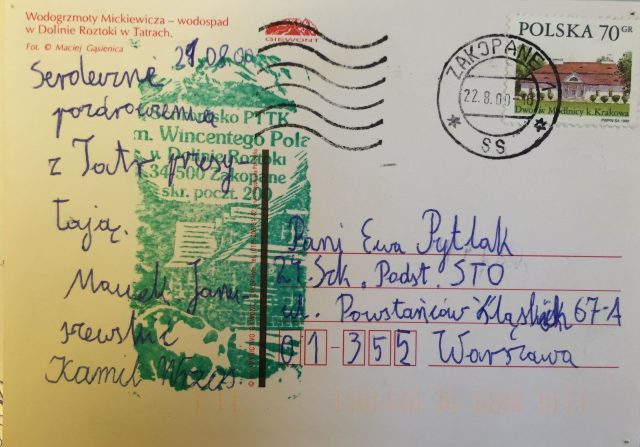 Wodogrzmoty Mickiewicza – wodospad
w Dolinie Roztoki w Tatrach.
Fot. © Maciej Gąsienica
GIEWONT
21.08.00
Serdeczne
pozdrowienia
z Tatr przesy
łają.
Maciek Janu-
szewski
Kamil
PTTK
m. Wincentego Pola
w Dolinie Roztoki
34-500 Zakopane
skr. poczt. 200
ZAKOPANE
22.8.00
SS
POLSKA 70 GR
Dwór w Modlnicy k. Krakowa
Pani Ewa Pytlak
27. Szk. Podst. STO
ul. Powstańców Śląskich 67-A
01-355 Warszawa